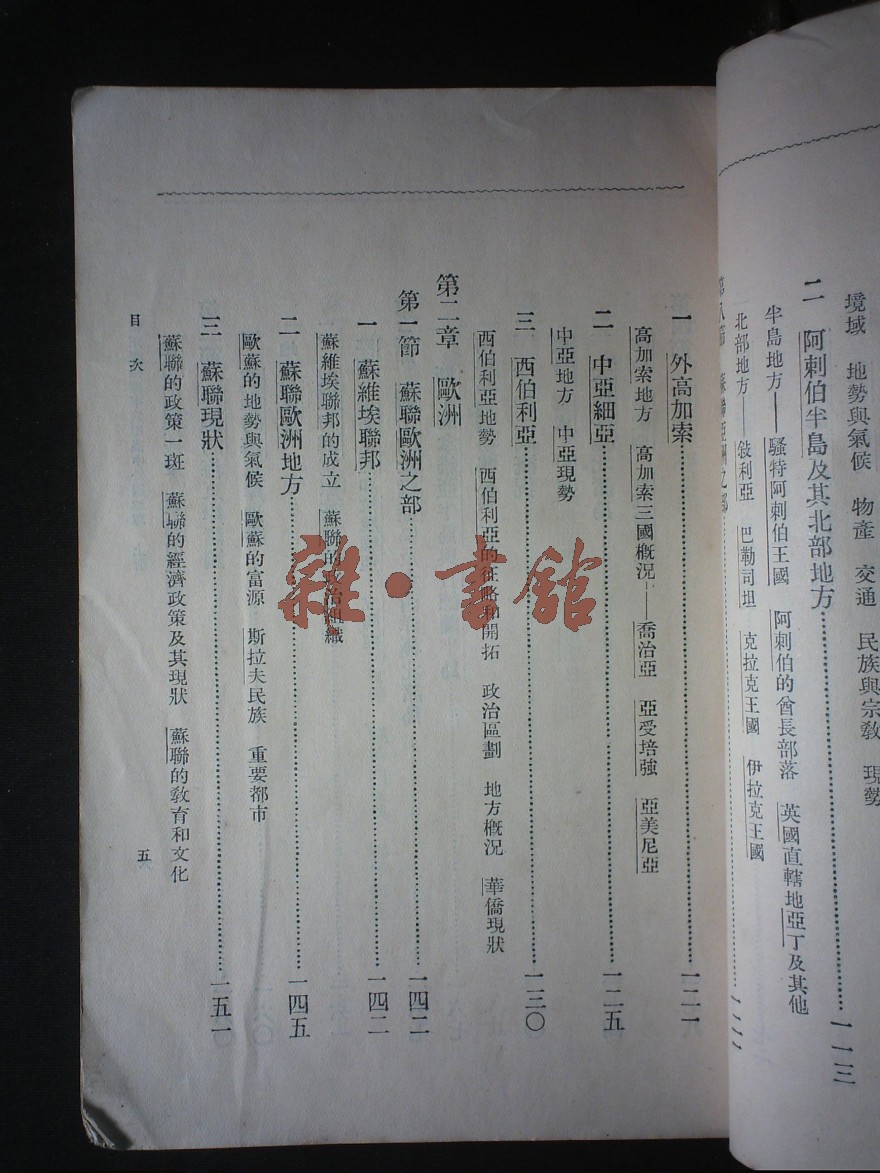 境域　地勢與氣候　物產　交通　民族與宗敎　現勢
二　阿剌伯半島及其北部地方……一一三
半島地方——騷特阿剌伯王國　阿剌伯的酋長部落　英國直轄地亞丁及其他
北部地方——敍利亞　巴勒司坦　克拉克王國　伊拉克王國
第八節　蘇聯亞洲之部……一二一
一　外高加索……一二一
高加索地方　高加索三國概況——喬治亞　亞受培強　亞美尼亞
二　中亞細亞……一二五
中亞地方　中亞現勢
三　西伯利亞……一三〇
西伯利亞地勢　西伯利亞的征略和開拓　政治區劃　地方概況　華僑現狀
第二章　歐洲
第一節　蘇聯歐洲之部……一四二
一　蘇維埃聯邦……一四二
蘇維埃聯邦的成立　蘇聯的政治組織
二　蘇聯歐洲地方……一四五
歐蘇的地勢與氣候　歐蘇的富源　斯拉夫民族　重要都市
三　蘇聯現狀……一五一
蘇聯的政策一斑　蘇聯的經濟政策及其現狀　蘇聯的敎育和文化
目次　五
雜·書館